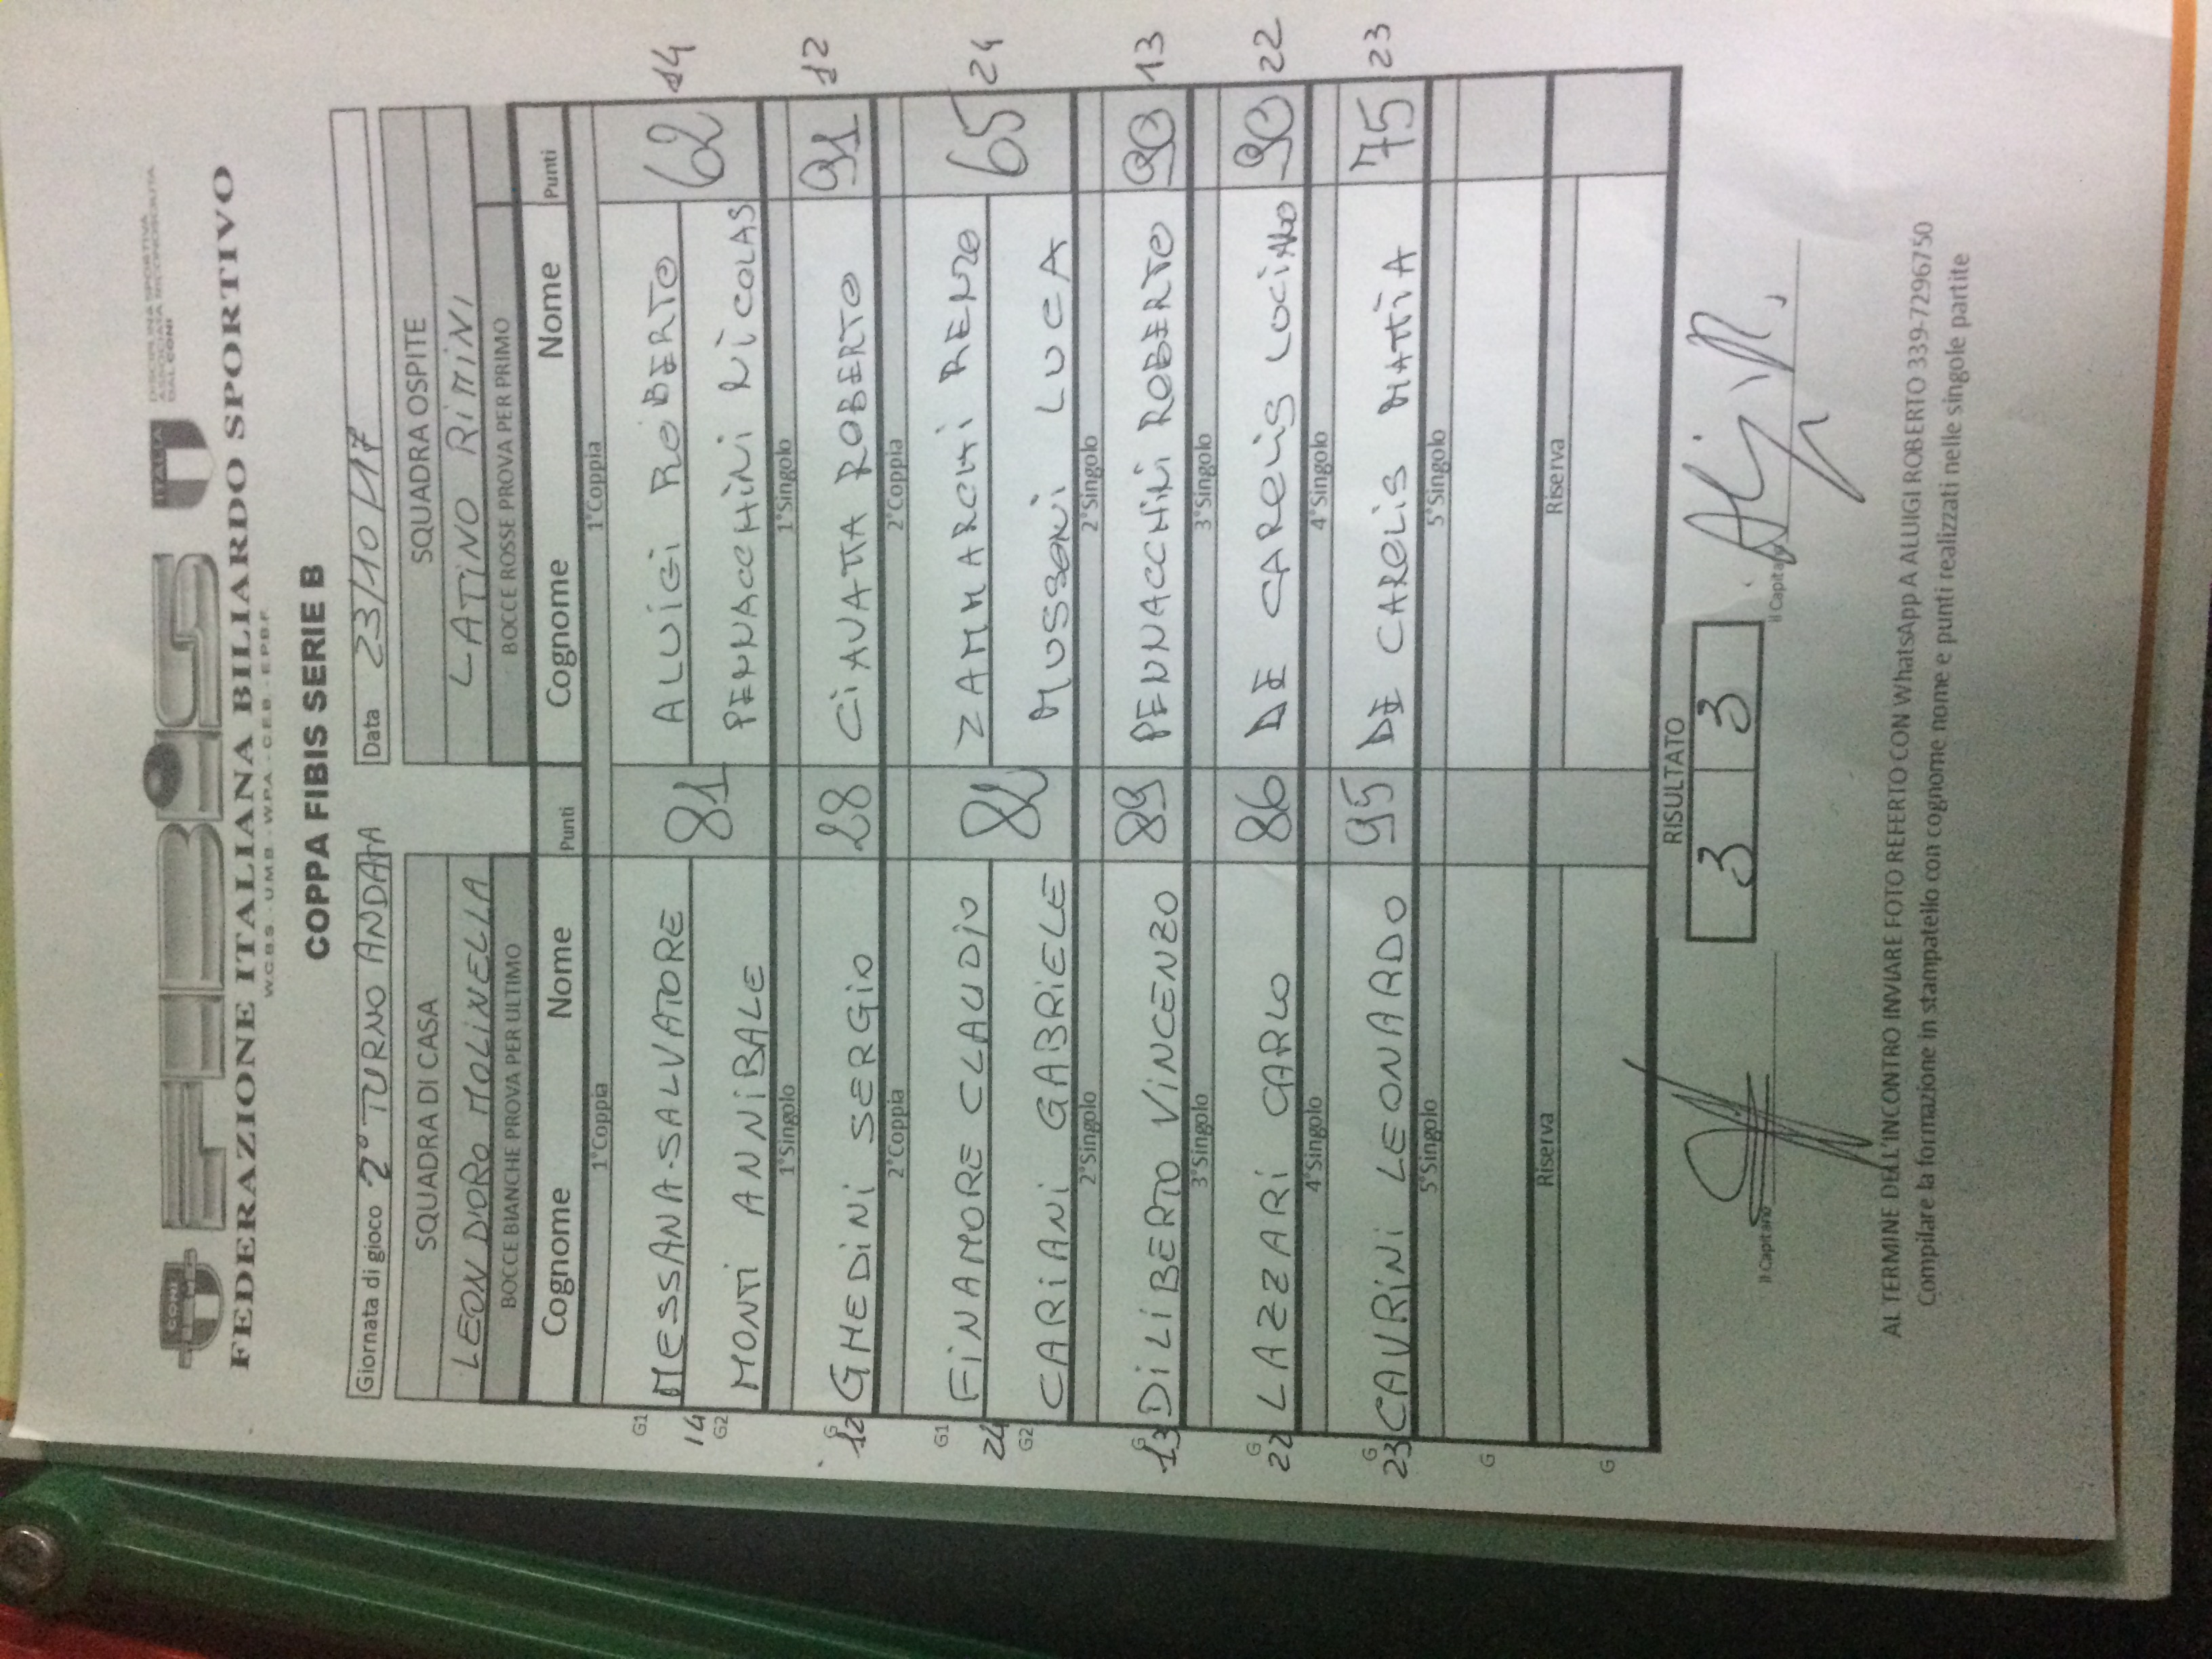 CONI
FIBiS
ITALIA
DISCIPLINA SPORTIVA
ASSOCIATA RICONOSCIUTA
DAL CONI
FEDERAZIONE ITALIANA BILIARDO SPORTIVO
W.C.B.S. - U.M.B. - W.P.A. - C.E.B. - E.P.B.F.
COPPA FIBIS SERIE B
Giornata di gioco 2° TURNO ANDATA Data 23/10/17
SQUADRA DI CASA SQUADRA OSPITE
LEON DORO MOLINELLA LATINO RIMINI
BOCCE BIANCHE PROVA PER ULTIMO BOCCE ROSSE PROVA PER PRIMO
Cognome Nome Punti Cognome Nome Punti
1°Coppia 1°Coppia
G1 MESSANA SALVATORE ALUIGI ROBERTO
14 81 62 14
G2 MONTI ANNIBALE PENNACCHINI NICOLAS
1°Singolo 1°Singolo
G 12 GHEDINI SERGIO 28 CIAVATTA ROBERTO 91 12
2°Coppia 2°Coppia
G1 FINAMORE CLAUDIO ZAMMARCHI RENZO
24 82 65 24
G2 CARIANI GABRIELE MUSSONI LUCA
2°Singolo 2°Singolo
G 13 DILIBERTO VINCENZO 89 PENNACCHINI ROBERTO 90 13
3°Singolo 3°Singolo
G 22 LAZZARI CARLO 86 DE CAROLIS LUCIANO 90 22
4°Singolo 4°Singolo
G 23 CAVRINI LEONARDO 95 DE CAROLIS MATTIA 75 23
5°Singolo 5°Singolo
G
Riserva Riserva
G
RISULTATO
3 3
Il Capitano Il Capitano
AL TERMINE DELL'INCONTRO INVIARE FOTO REFERTO CON WhatsApp A ALUIGI ROBERTO 339-7296750
Compilare la formazione in stampatello con cognome nome e punti realizzati nelle singole partite